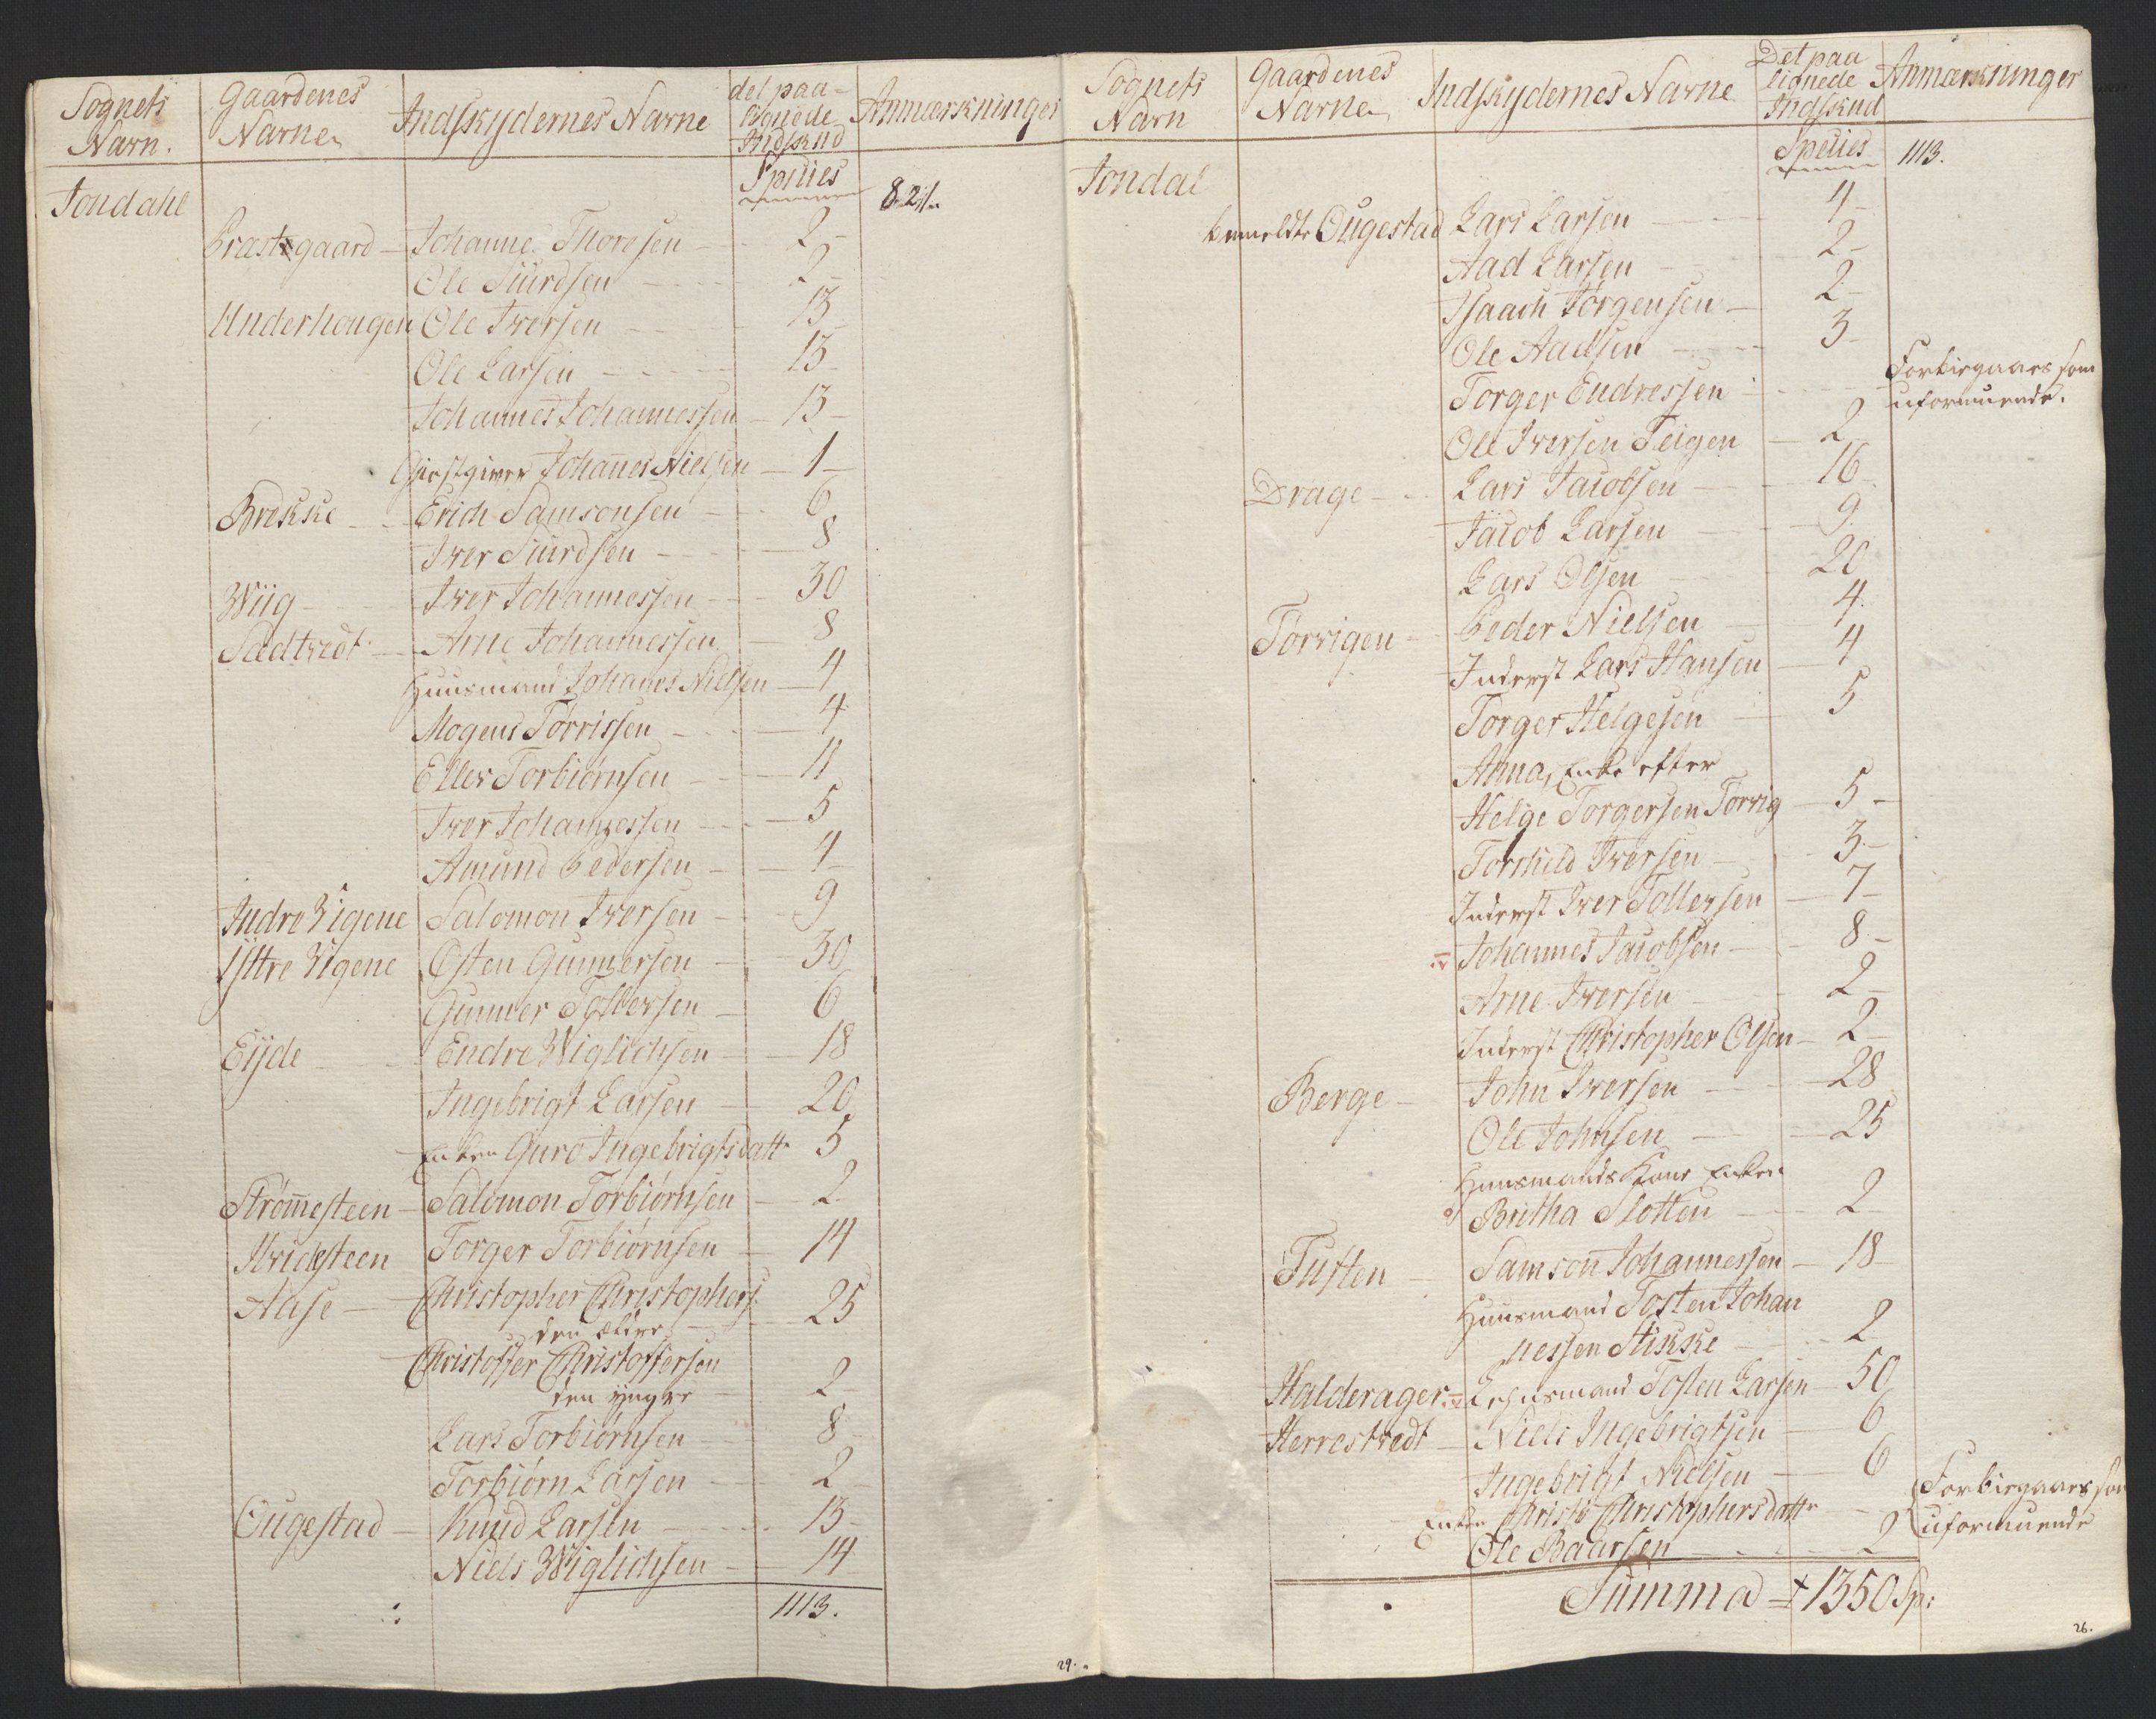 Sognets Navn. Gaardenes Navne Indskydernes Navne det paa- lignede Indskud Anmærkninger
Species 821/.
Jondahl
Præstegaard - Johannes Thoresen - 2 -
Ole Siurdsen - 2 -
Underhougen Ole Iversen - 13
Ole Larsen - 13 -
Johannes Johannessen - 13 -
Giestgiver Johanes Nielsen - 1 -
Brekke - Erich Samsonsen - 6
Iver Siurdsen - 8
Wiig - Iver Johannessen - 30
Sædtvedt - Arne Johannessen - 8
Huusmand Johanes Nielsen - 4
Mogens Tørrissen - 4
Eller Torbiørnsen - 11
Iver Johannessen - 5
Amund Pedersen - 4
Indre Vigene Salomon Iversen - 9
Yttre Vigene Østen Gunnersen - 30
Gunner Tollevsen - 6
Eyde - Endre Wiglichsen - 18
Ingebrigt Larsen - 20
Enken Guro Ingebrigtsdattr 5
Strømesteen - Salomon Torbiørnsen - 2
Hvidesteen Torger Torbiørnsen - 14
Aase - Christopher Christophers: 25
den ældre
Christoffer Christoffersen
den yngre - 2 -
Lars Torbiørnsen 8 -
Torbiørn Larsen - 2 -
Ougestad - Knud Larsen - 13 -
Niels Wiglichsen - 14
1113.
29.
Sognets Navn Gaardenes Navne Indskydernes Navne Det paa lignede Indskud Anmærkninger
Species 1113.
Jondal
bemeldte Ougestad Lars Larsen - 4 -
Aad Larsen - 2 -
Isaach Jørgensen - 2 -
Ole Aadsen - 3 -
Torger Endressen - Forbiegaaes som
uformuende.
Ole Iversen Teigen - 2
Drage - Lars Jacobsen - 16
Jacob Larsen - 9
Lars Olsen - 20
Torvigen - Peder Nielsen - 4
Inderst Lars Hansen - 4
Torger Helgesen - 5
Anna, Enke efter
Helge Torgersen Torvig - 5 -
Torchild Iversen - 3 -
Inderst Iver Tollevsen - 7 -
Johannes Jacobsen - 8 -
Arne Iversen - 2 -
Inderst Christopher Olsen - 2 -
Berge - John Iversen - 28
Ole Johnsen - 25
Huusmands Kone Enken
Britha Slotten - 2 -
Tuften - Samson Johannessen - 18 -
Huusmand Tosten Johan
nessen Stikke - 2
Halderager Lehnsmand Tosten Larsen - 50
Herrestvedt - Niels Ingebrigtsen - 6
Ingebrigt Nielsen - 6
Enken Christi Christophersdattr - Forbiegaaes som
uformuende
Ole Baarsen - 2
Summa = 1350 Sp:
26.